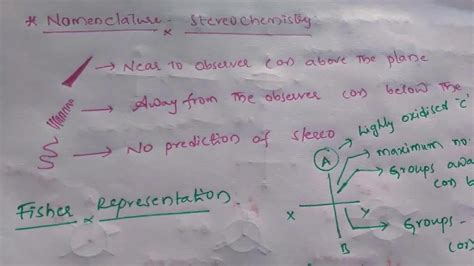 * Nomenclature - Stereochemistry
→ Near to observer (or) above the plane
→ Away from the observer (or) below the
→ No prediction of stereo
Highly oxidised 'C'
A
→ maximum no.
→ Groups awa
(or) b
Fisher Representation.
X
Y
→ Groups -
B
(or)